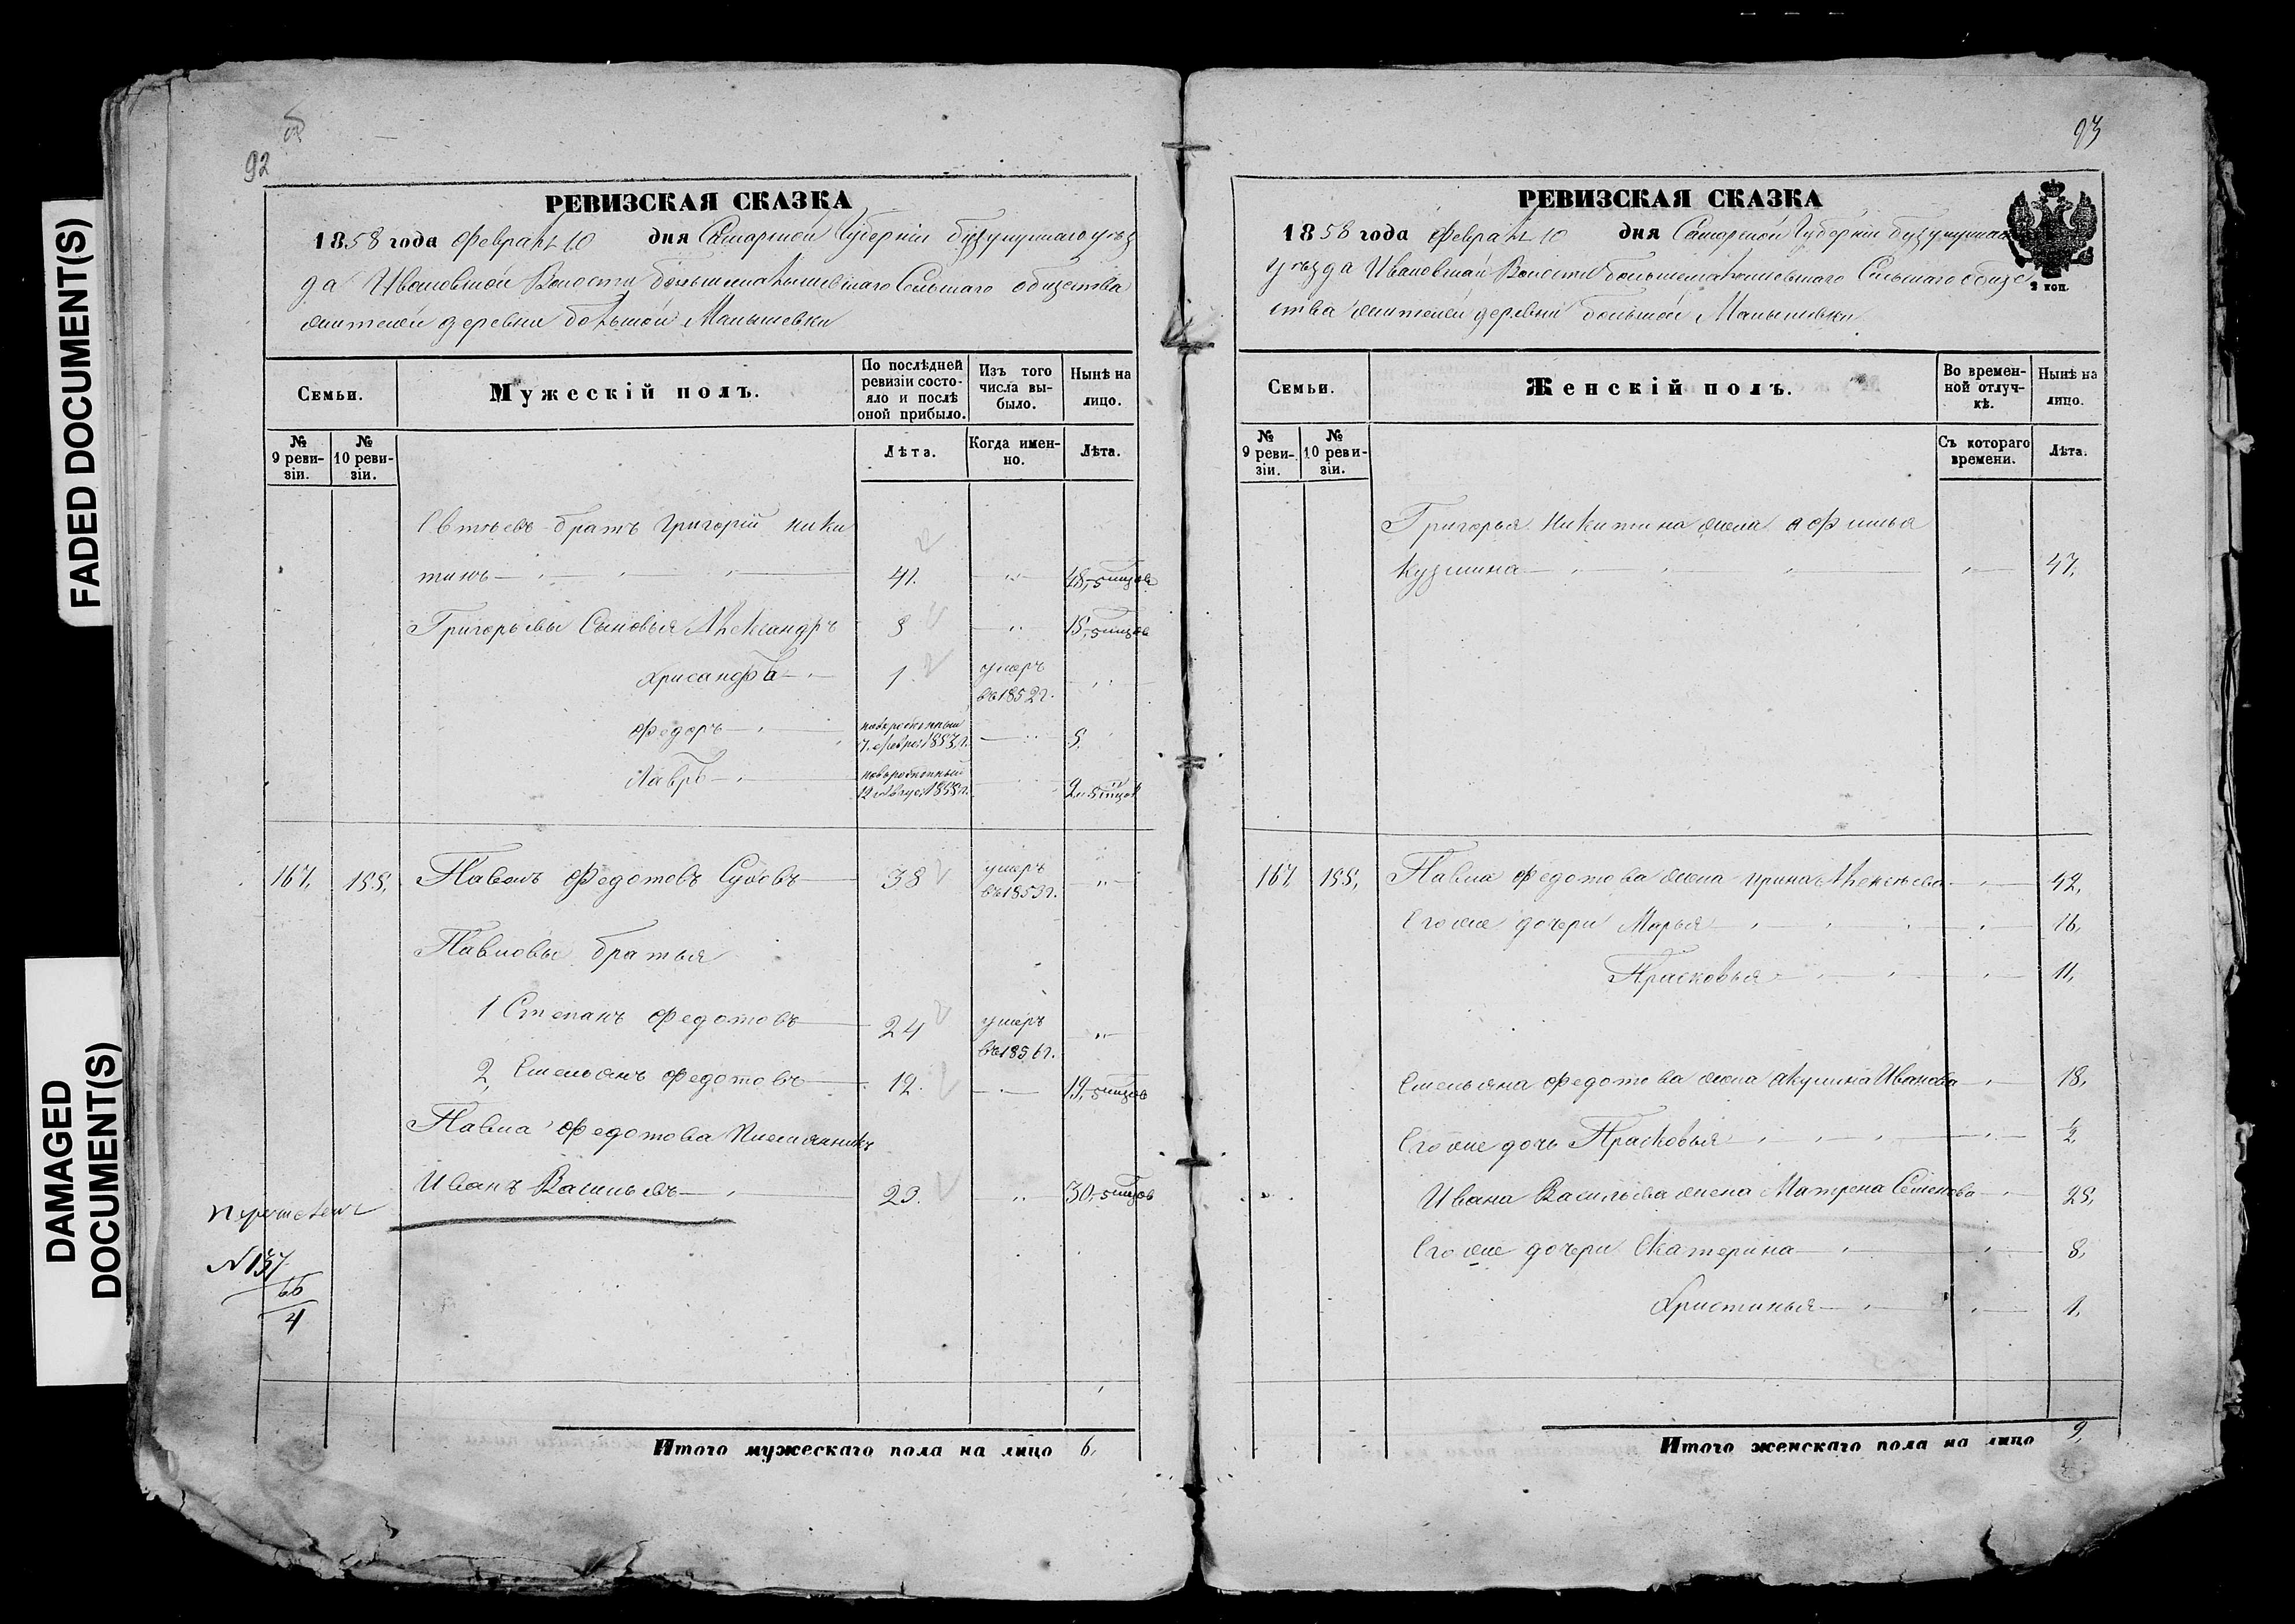 FADED DOCUMENT(S)
DAMAGED
DOCUMENT(S)
92
РЕВИЗСКАЯ СКАЗКА
1858 года февраля 10 дня Самарской Губернии бузулукскаго уѣз
да Ивановской Волости большемалышевскаго Сельскаго общества
жителей деревни большой Малышевки
Семьи.
Мужескій полъ.
По послѣдней
ревизіи состо-
яло и послѣ
оной прибыло.
Изъ того
числа вы-
было.
Нынѣ на
лицо.
№
9 реви-
зіи.
№
10 реви-
зіи.
Лѣта.
Когда имен-
но.
Лѣта.
Евтѣевъ братъ Григорій ники
тинъ 41. 48,
Григорьевы Сыновья Александръ 8 15,
Хрисанфъ 1. умеръ
въ 1852 г.
Федоръ новорожденный
1853 г. 5.
Лавръ новорожденный
167, 155, Павелъ Федотовъ 38 умеръ
въ 1853 г.
Павловы братья
1 Степанъ Федотовъ 24 умеръ
2, Емельянъ Федотовъ 12. 19,
Павла Федотова племянникъ
Иванъ Васильевъ 23. 30,
N 137
66
4
Итого мужескаго пола на лицо 6,
93
РЕВИЗСКАЯ СКАЗКА
1858 года февраля 10 дня Самарской Губерніи бузулукскаго
уѣзда Ивановской Волости большемалышевскаго Сельскаго общес
тва жителей деревни большой Малышевки
2 коп.
Семьи.
Женскій полъ.
Во времен-
ной отлуч-
кѣ.
Нынѣ на
лицо.
№
9 реви-
зіи.
№
10 реви-
зіи.
Съ котораго
времени.
Лѣта.
Григорья Никитина жена афимья
Кузмина 47,
167 155, Павла Федотова жена ирина Алексѣева 42,
Его же дочери Марья 16,
Прасковья 11,
Емельяна Федотова жена акулина Иванова 18,
Его же дочь Прасковья ½
Ивана Васильева жена Матрена Семенова 25,
Его же дочери Екатерина 8,
Христинья 1,
Итого женскаго пола на лицо 9,